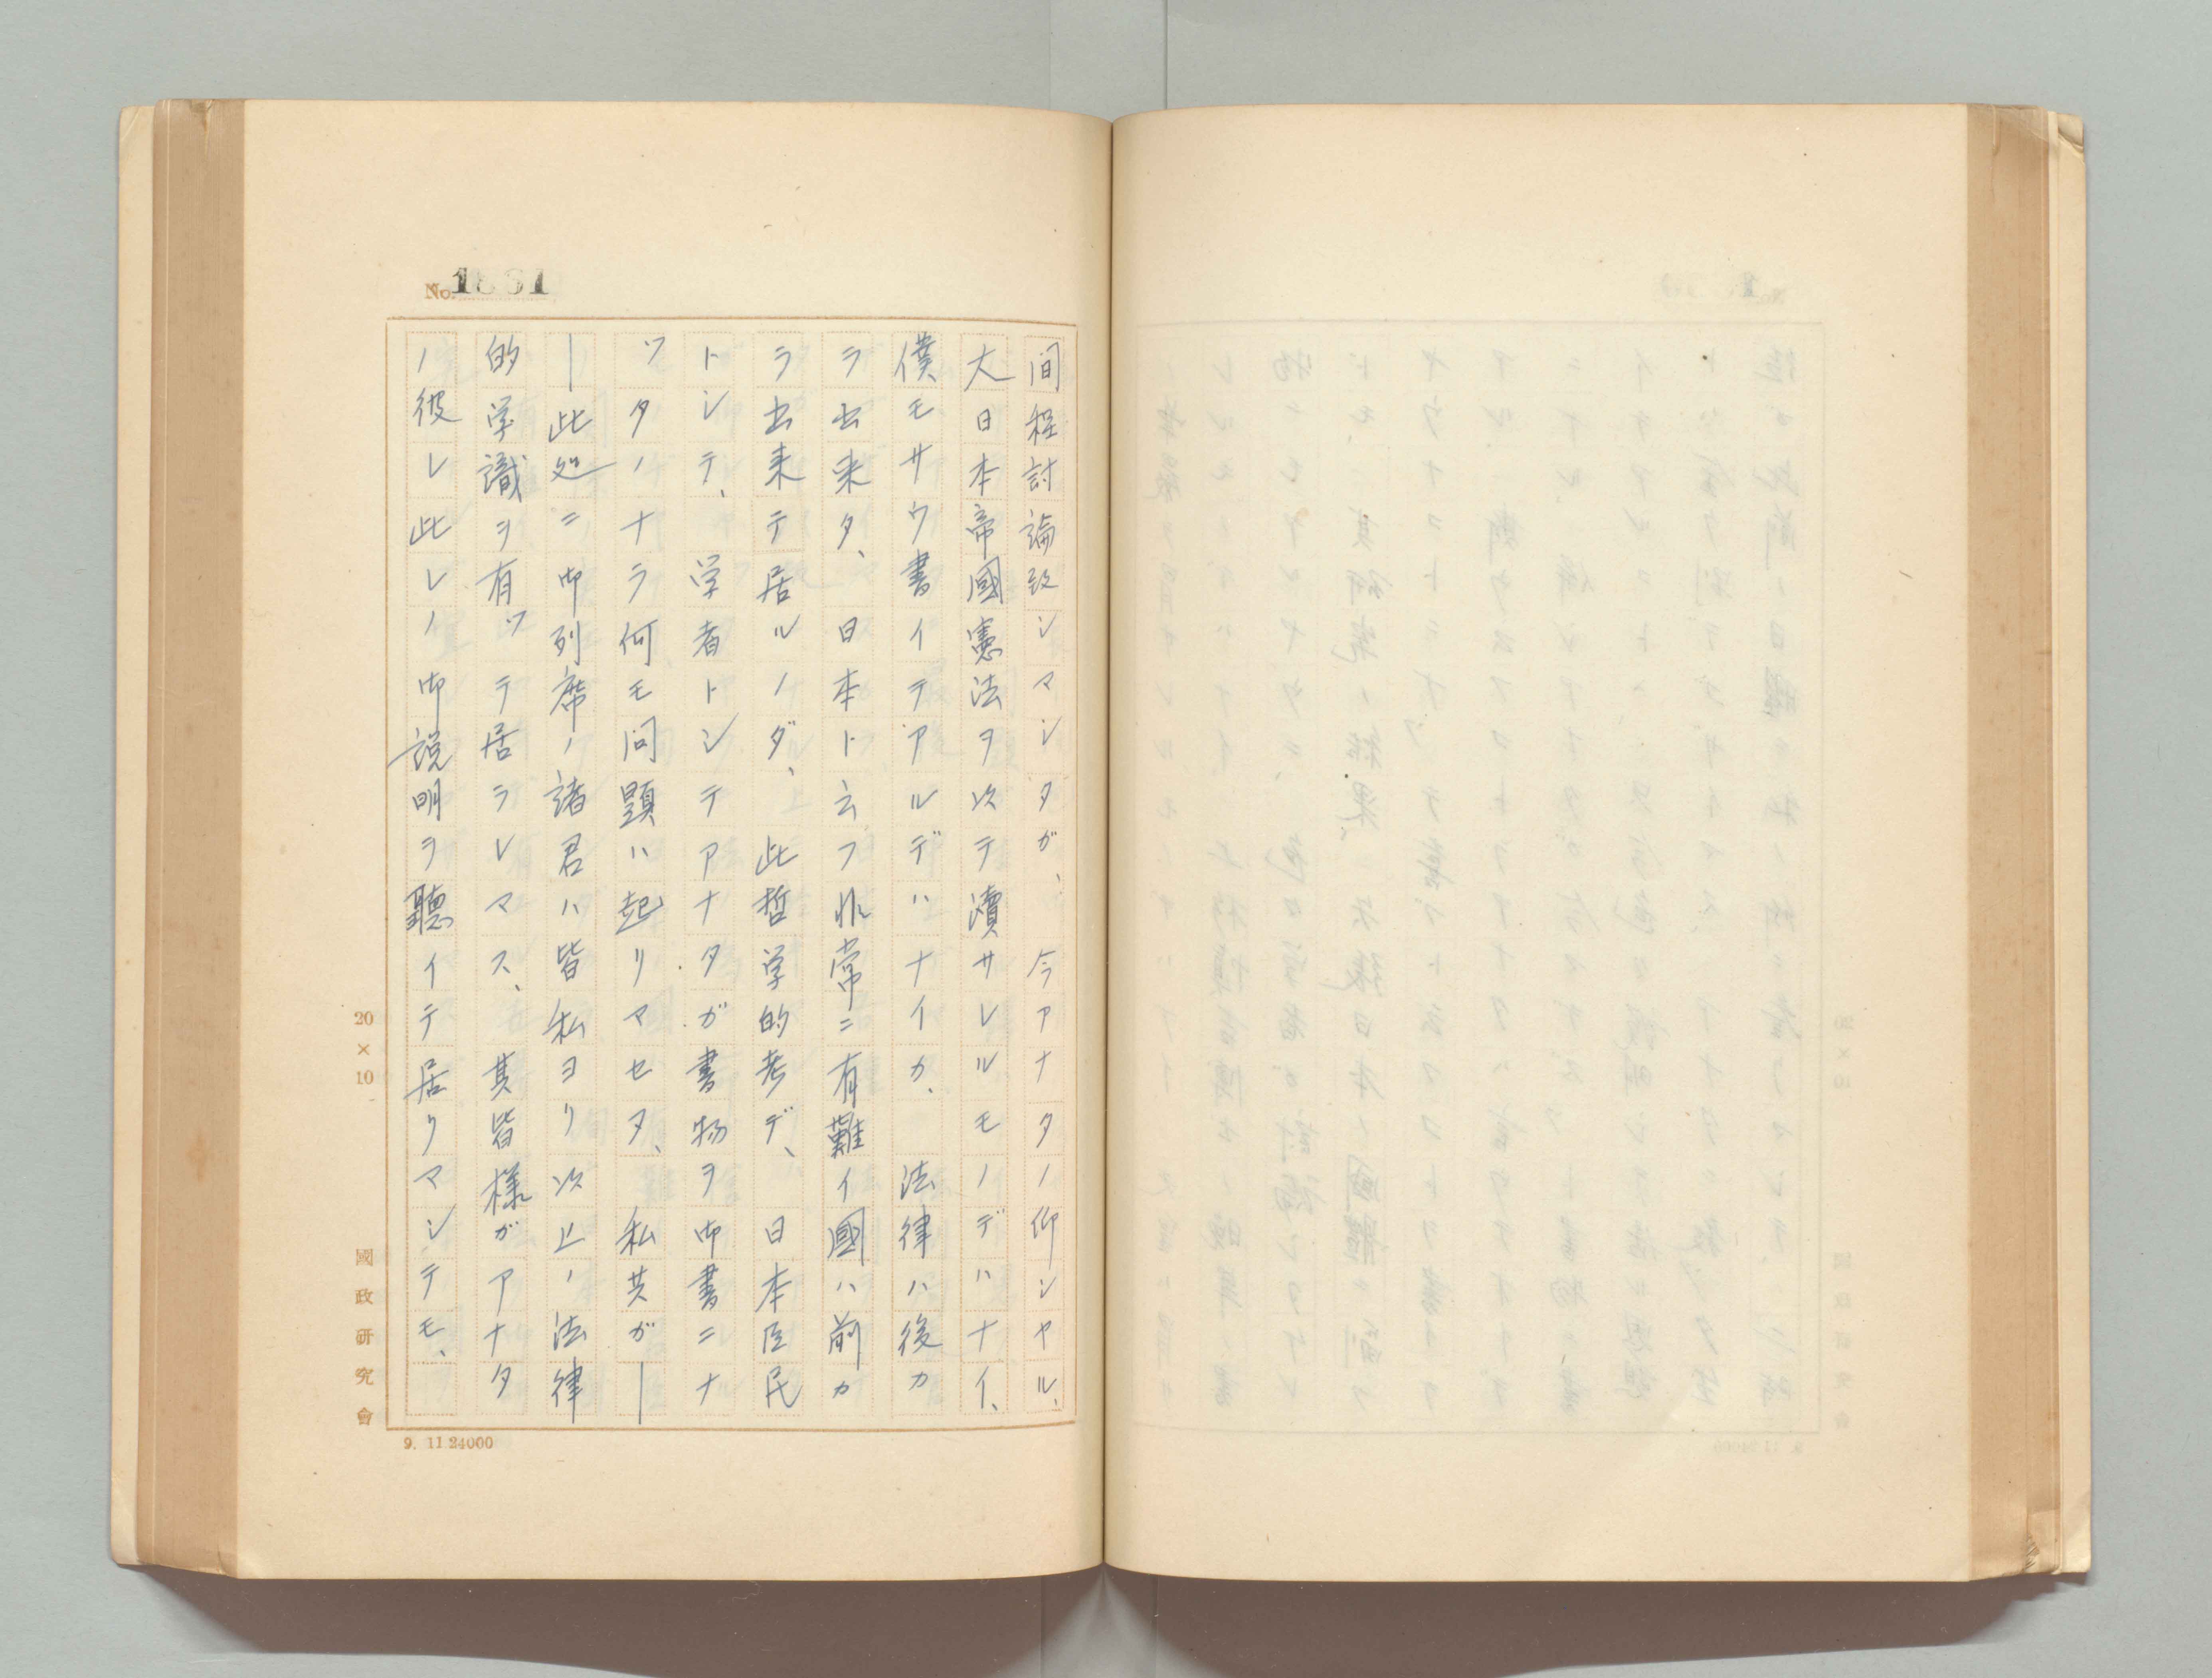 No. 1331
間程討論致シマシタガ、今アナタノ仰シヤル、
大日本帝國憲法ヲ以テ瀆サレルモノデハナイ、
僕モサウ書イテアルデハナイカ、法律ハ後カ
ラ出来タ、日本ト云フ非常ニ有難イ國ハ前カ
ラ出来テ居ルノダ、此哲学的考デ、日本臣民
トシテ、学者トシテアナタガ書物ヲ御書ニナ
ツタノナラ何モ問題ハ起リマセヌ、私共ガ―
―此処ニ御列席ノ諸君ハ皆私ヨリ以上ノ法律
的学識ヲ有ツテ居ラレマス、其皆様ガアナタ
ノ彼レ此レノ御説明ヲ聽イテ居リマシテモ、
20×10
國政研究會
9. 11 24000